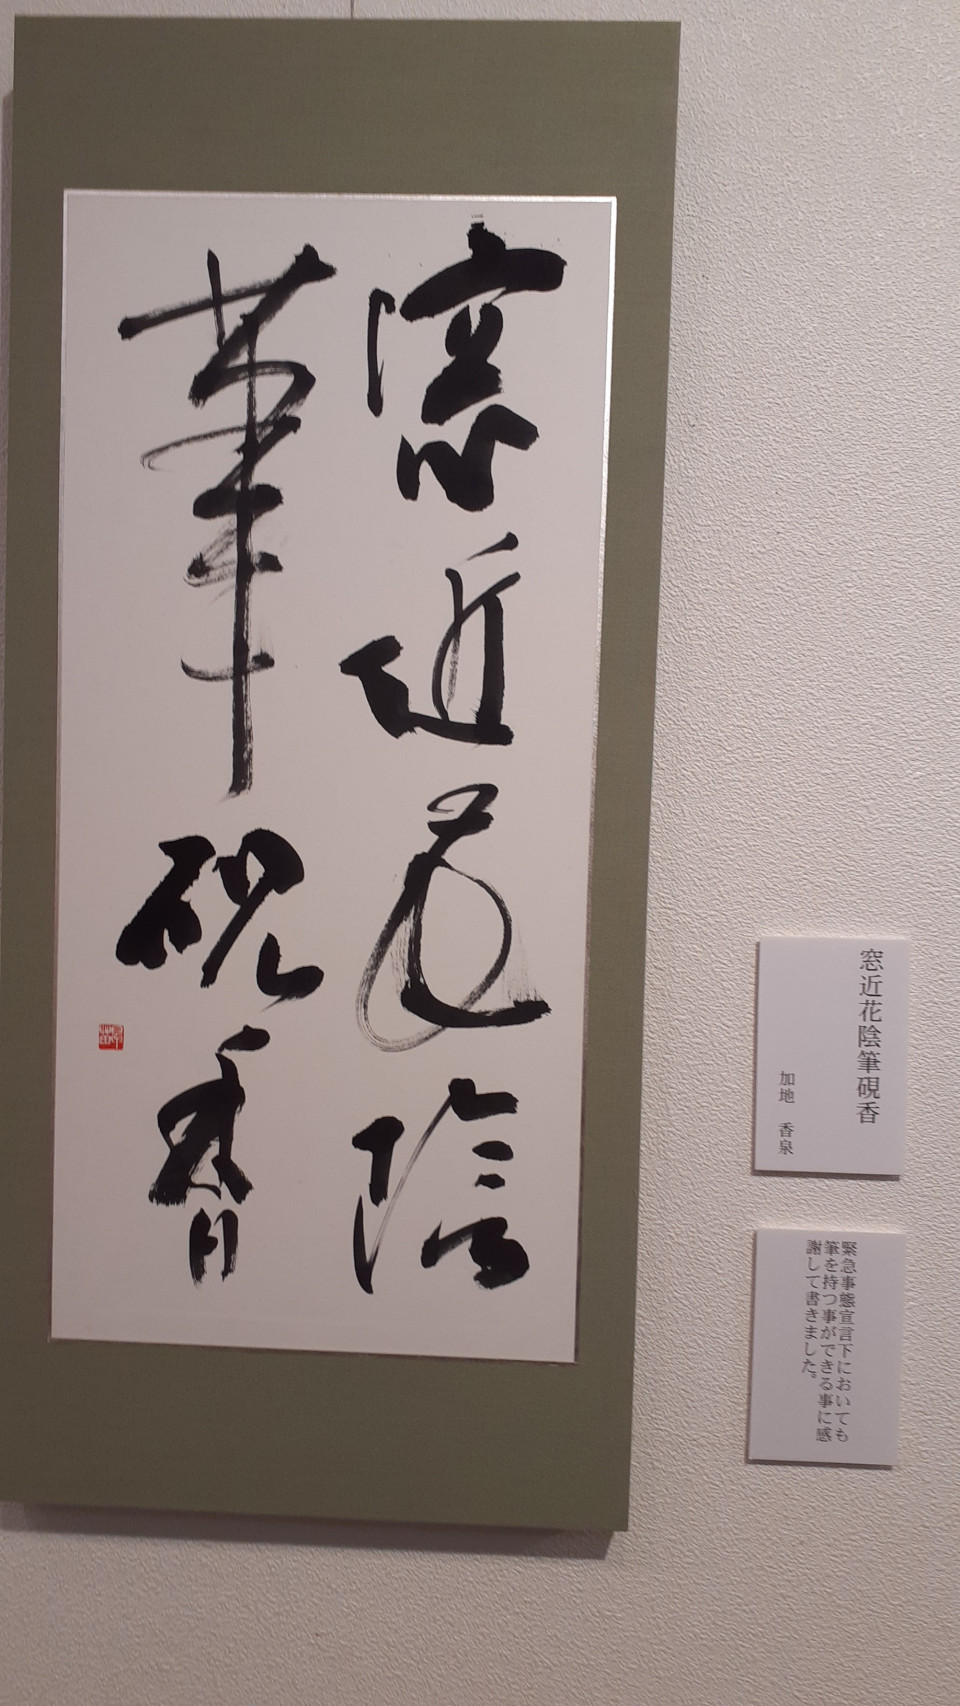 窓近花陰
筆硯香
窓近花陰筆硯香
加地 香泉
緊急事態宣言下においても
筆を持つ事ができる事に感
謝して書きました。